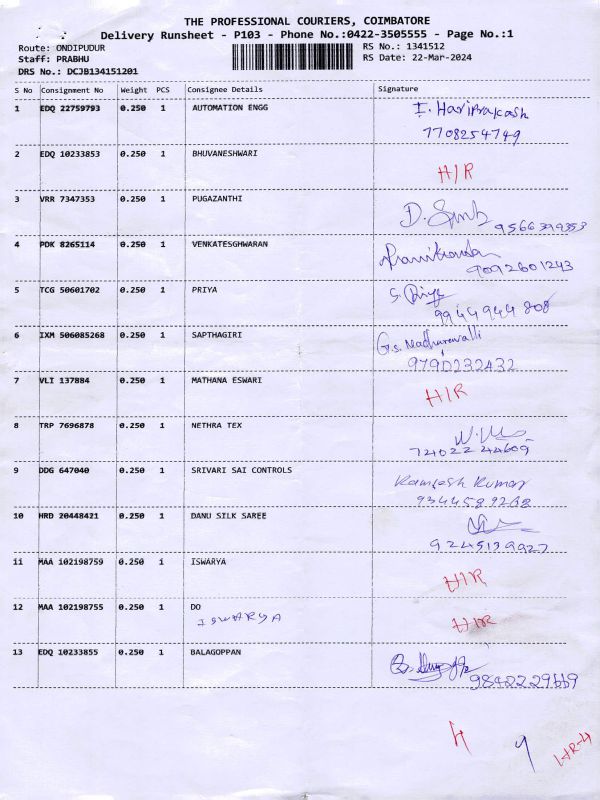 THE PROFESSIONAL COURIERS, COIMBATORE
Delivery Runsheet - P103 - Phone No.:0422-3505555 - Page No.:1
Route: ONDIPUDUR RS No.: 1341512
Staff: PRABHU RS Date: 22-Mar-2024
DRS No.: DCJB134151201
S No Consignment No Weight PCS Consignee Details Signature
1 EDQ 22759793 0.250 1 AUTOMATION ENGG I. Hariprakash
7708254749
2 EDQ 10233853 0.250 1 BHUVANESHWARI H/R
3 VRR 7347353 0.250 1 PUGAZANTHI D.
9566399353
4 PDK 8265114 0.250 1 VENKATESGHWARAN
9092601243
5 TCG 50601702 0.250 1 PRIYA S. Priya
9944944808
6 IXM 506085268 0.250 1 SAPTHAGIRI G.s. Madhuravalli
9790232432
7 VLI 137884 0.250 1 MATHANA ESWARI H/R
8 TRP 7696878 0.250 1 NETHRA TEX
7402244609
9 DDG 647040 0.250 1 SRIVARI SAI CONTROLS Ramesh Kumar
9344589268
10 HRD 20448421 0.250 1 DANU SILK SAREE
9245139927
11 MAA 102198759 0.250 1 ISWARYA H/R
12 MAA 102198755 0.250 1 DO H/R
ISWARYA
13 EDQ 10233855 0.250 1 BALAGOPPAN
9842229669
4 9 HR-4